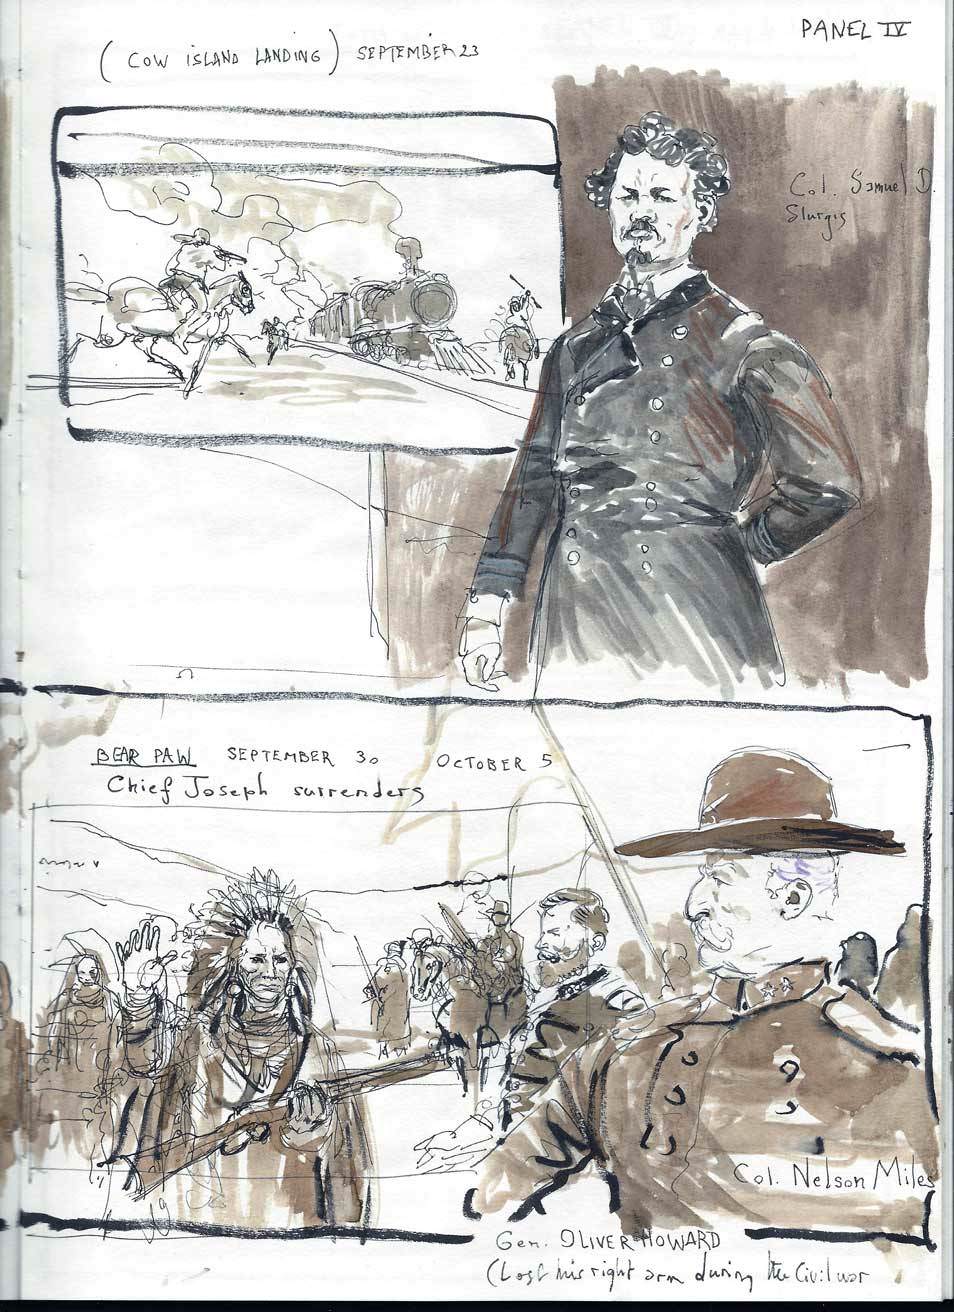 PANEL IV
(COW ISLAND LANDING) SEPTEMBER 23
Col. Samuel D.
Sturgis
BEAR PAW SEPTEMBER 30 OCTOBER 5
Chief Joseph surrenders
Col. Nelson Miles
Gen. OLIVER HOWARD
(Lost his right arm during the Civil war